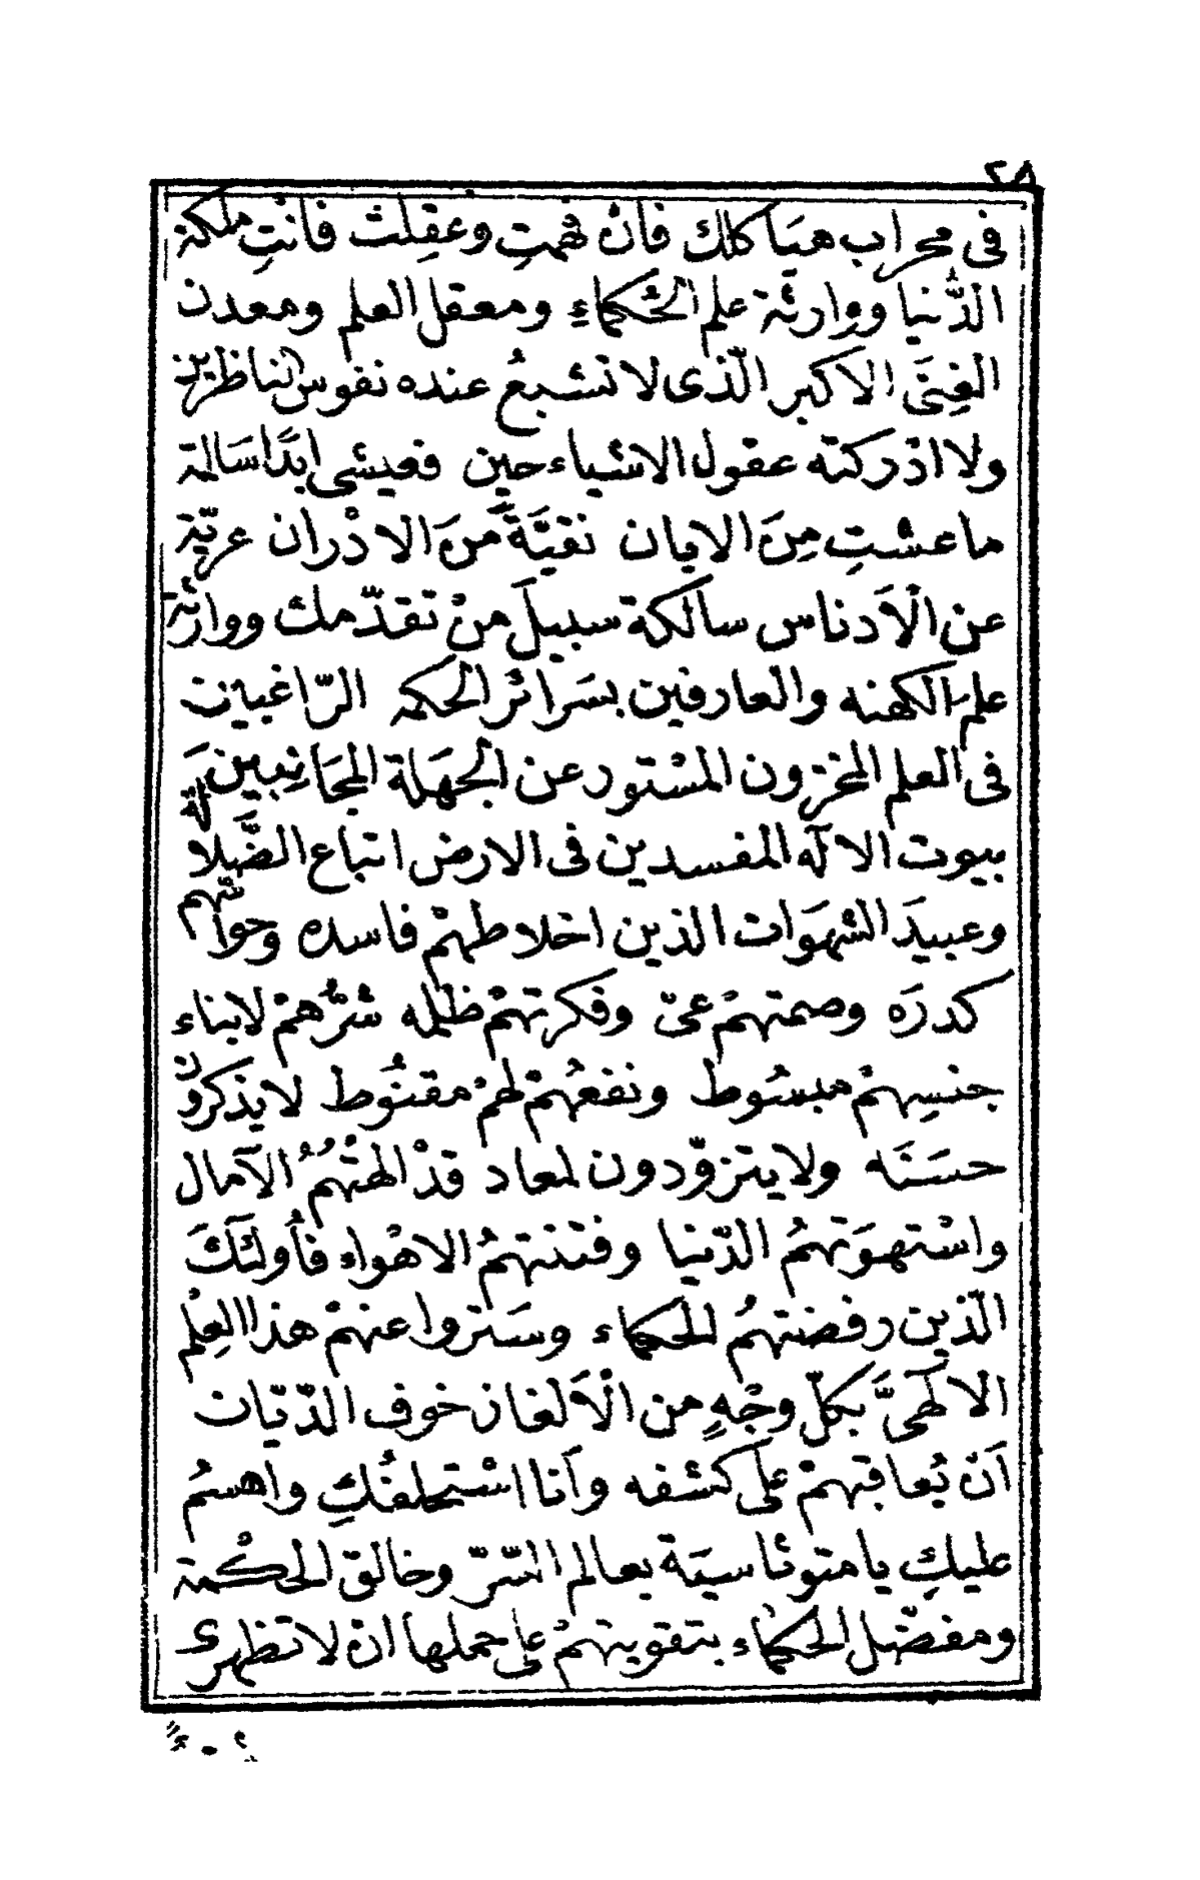 ٢٨
فى محراب هياكلك فأن فهمتِ وعقِلت فانتِ ملكة
الدُّنيا ووارثة علم الحُكماءِ ومعقل العلم ومعدن
الغِنَى الاكبر الّذى لا تشبعُ عنده نفوس الناظرين
ولا ادركته عقول الاشياء حين فعيشى ابدًا سالمة
ما عشتِ مِنَ الايمان نقيَّةً مِنَ الادْران عريّة
عن الْاَدناس سالكة سبيلَ منْ تقدّمك ووارثة
علم الكهنه والعارفين بسَرائر الحكمه الرّاغبين
فى العلم المخزون المسْتور عن الجهَلة المجَانِبين
بيوت الالٓه المفسدين فى الارض اتباع الضَّلالَة
وعبيدَ الشهوَات الذين اخلاطهمْ فاسده وحواسّهم
كدرَه وصمتهمْ عىّ وفكرتهمْ ظلمه شرُّهمْ لابناء
جنسِهمْ مبسُوط ونفعُهمْ لهمْ مقنُوط لا يذكرون
حسَنَه ولا يتزوّدون لمعاد قدْ الهتْهُمُ الآمال
واسْتهوَتهمُ الدّنيا وفتنتهمُ الاهْواء فأُولئَكَ
الّذين رفضتهمُ الحكماء وسَتروا عنهمْ هذا العِلْم
الالٓهىَّ بكلّ وجْهٍ من الْاَلغان خوف الدّيّان
اَنْ يُعاقبهمْ على كشفه واَنا اسْتحلفُكِ واهسمُ
عليكِ يا متوثاسيَة بعالم السّرّ وخالق الحكْمة
ومفضّل الحكماء بتقويتهمْ على حملها انْ لا تظهرى